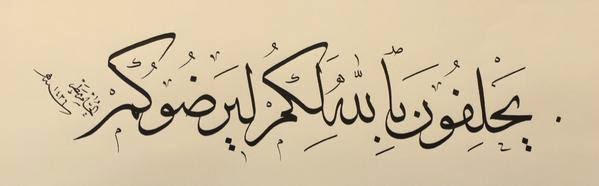 يَحْلِفُونَ بِاللَّهِ لَكُمْ لِيُرْضُوكُمْ